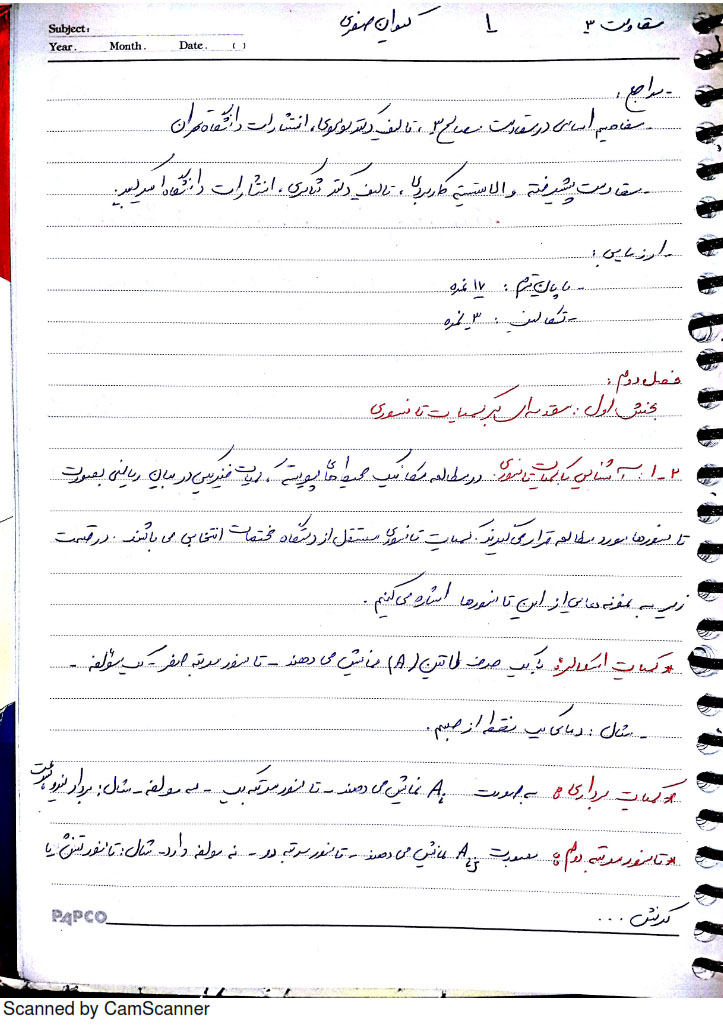 Subject:
Year. Month. Date. ( )
مقاومت ۳
1
کیوان صفری
- مراجع:
- مفاهیم اساسی در مقاومت مصالح ۳، تالیف دکتر، انتشارات دانشگاه تهران
- مقاومت پیشرفته و الاستیسیته کاربردی، تالیف دکتر شاکری، انتشارات دانشگاه امیرکبیر.
- ارزیابی:
- پایان ترم: ۱۷ نمره
- تکالیف: ۳ نمره
فصل دوم:
بخش اول: مقدمه ای بر کمیات تانسوری
۲-۱: آشنایی با کمیات تانسوری: در مطالعه مکانیک محیط های پیوسته، کمیات فیزیکی در بیان ریاضی بصورت
تانسورها مورد مطالعه قرار می گیرند. کمیات تانسوری مستقل از دستگاه مختصات انتخابی می باشند. در قسمت
زیر به نمونه هایی از این تانسورها اشاره می کنیم.
* کمیات اسکالر: با یک حرف لاتین (A) نمایش می دهند - تانسور مرتبه صفر - یک مؤلفه -
- مثال: دمای یک نقطه از جسم.
* کمیات برداری: به صورت Ai نمایش می دهند - تانسور مرتبه یک - سه مولفه - مثال: بردار نیرو، سرعت
* تانسور مرتبه دوم: بصورت Aij نمایش می دهند - تانسور مرتبه دو - نه مولفه دارد - مثال: تانسور تنش یا
کرنش ...
PAPCO
Scanned by CamScanner